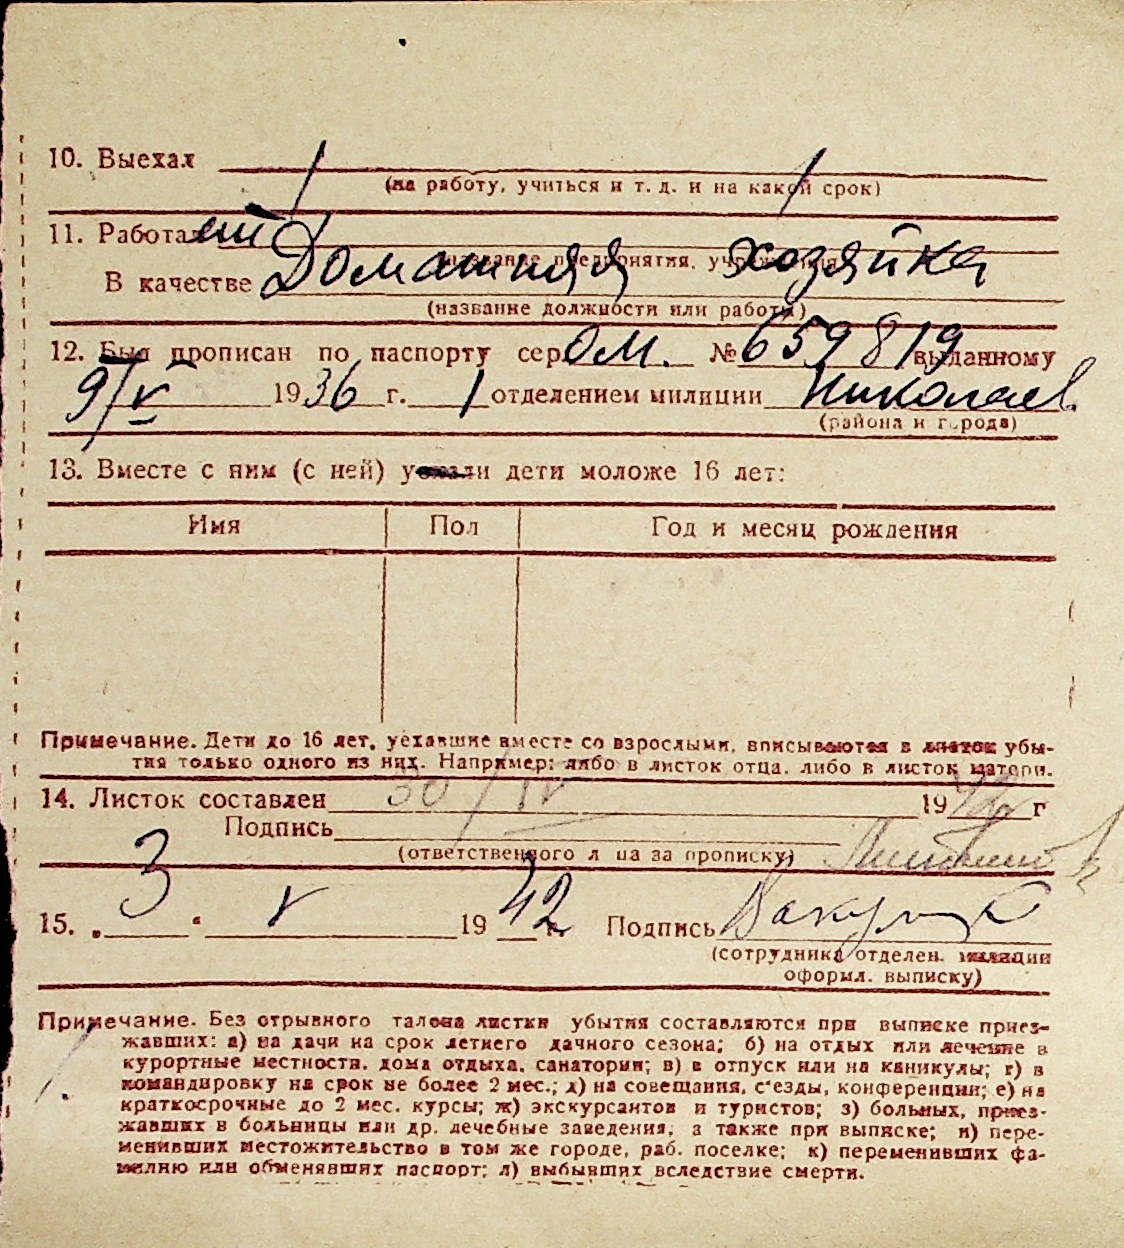 10. Выехал
(на работу, учиться и т. д. и на какой срок)
11. Работал
(название предприятия, учреждения)
В качестве Домашняя хозяйка
(название должности или работы)
12. Был прописан по паспорту сер. ОМ. № 659819 выданному
9/V 1936 г. 1 отделением милиции Николаев.
(района и города)
13. Вместе с ним (с ней) уехали дети моложе 16 лет:
Имя Пол Год и месяц рождения
Примечание. Дети до 16 лет, уехавшие вместе со взрослыми, вписываются в листок убы-
тия только одного из них. Например: либо в листок отца, либо в листок матери.
14. Листок составлен 30/IV 1942 г
Подпись
(ответственного лица за прописку)
15. „3“ V 1942 г. Подпись
(сотрудника отделен. милиции
оформл. выписку)
Примечание. Без отрывного талона листки убытия составляются при выписке приез-
жавших: а) на дачи на срок летнего дачного сезона; б) на отдых или лечение в
курортные местности, дома отдыха, санатории; в) в отпуск или на каникулы; г) в
командировку на срок не более 2 мес.; д) на совещания, с'езды, конференции; е) на
краткосрочные до 2 мес. курсы; ж) экскурсантов и туристов; з) больных, приез-
жавших в больницы или др. лечебные заведения, а также при выписке; и) пере-
менивших местожительство в том же городе, раб. поселке; к) переменивших фа-
милию или обменявших паспорт; л) выбывших вследствие смерти.